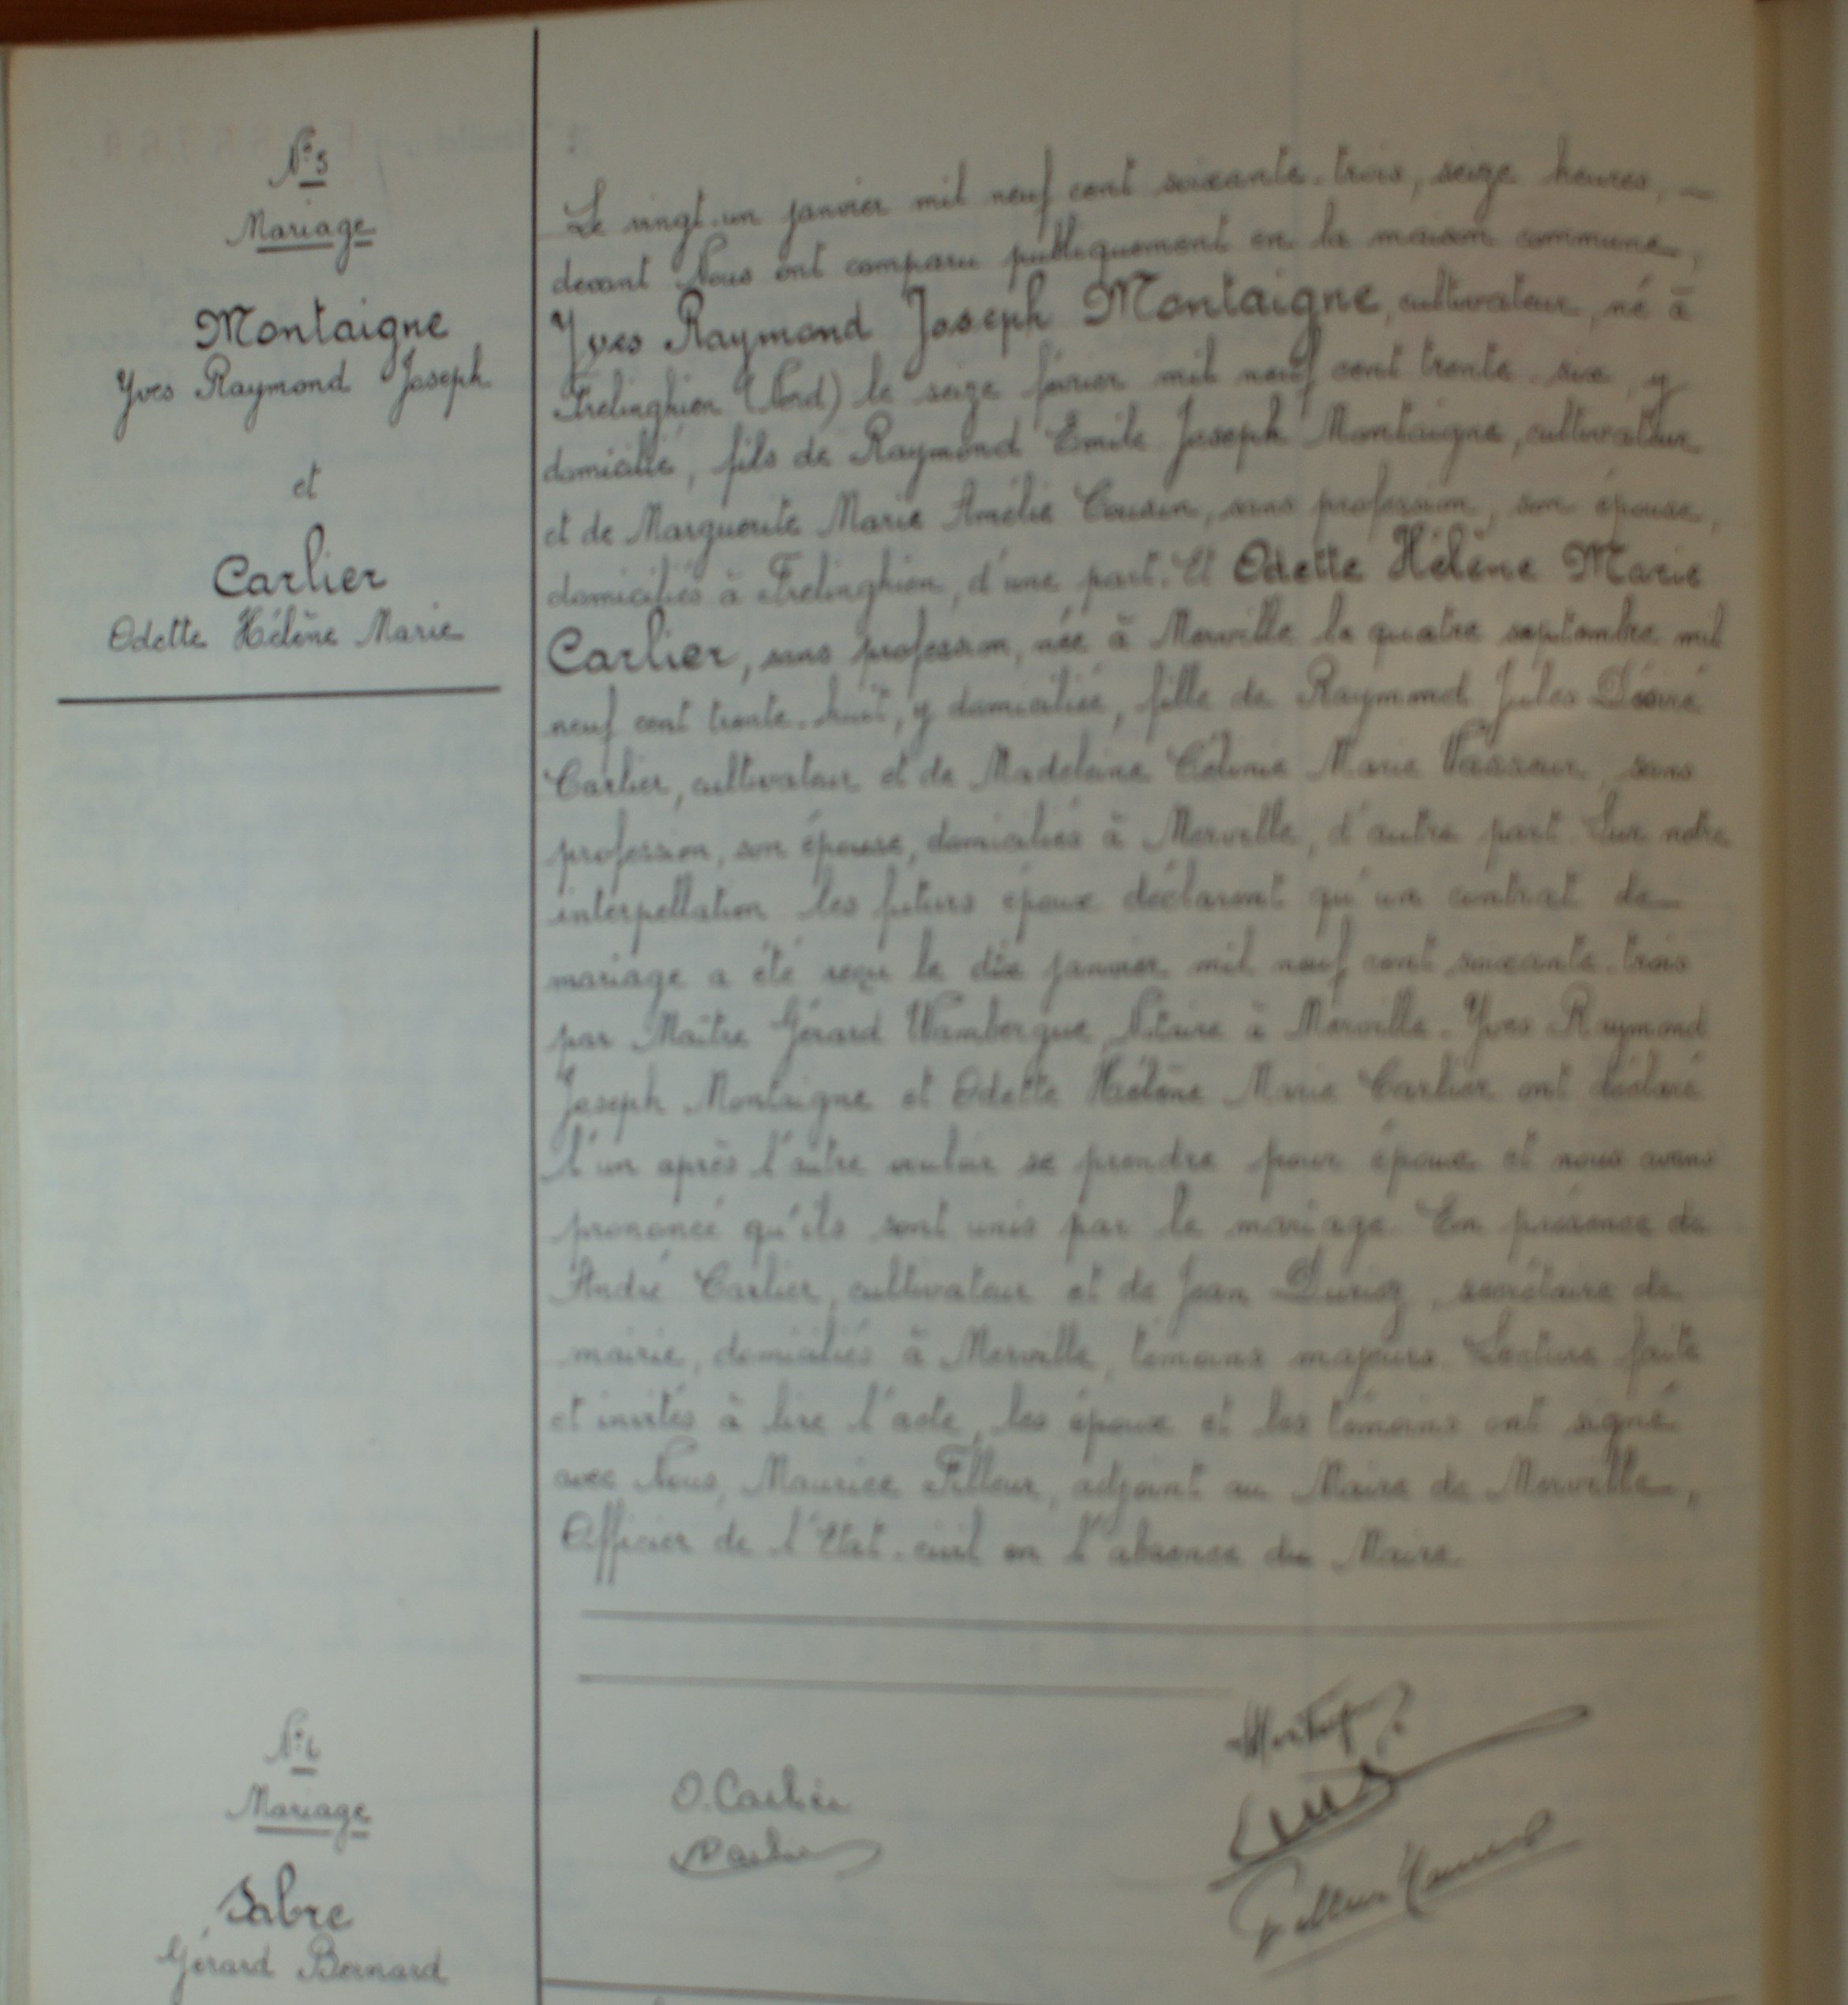 N° 5
Mariage
Montaigne
Yves Raymond Joseph
et
Carlier
Odette Hélène Marie
Le vingt-un janvier mil neuf cent soixante-trois, seize heures, —
devant Nous ont comparu publiquement en la maison commune,
Yves Raymond Joseph Montaigne, cultivateur, né à
Frelinghien (Nord) le seize février mil neuf cent trente-six, y
domicilié, fils de Raymond Emile Joseph Montaigne, cultivateur
et de Marguerite Marie Amélie Cousin, sans profession, son épouse,
domiciliés à Frelinghien, d'une part. Et Odette Hélène Marie
Carlier, sans profession, née à Merville le quatre septembre mil
neuf cent trente-huit, y domiciliée, fille de Raymond Jules Désiré
Carlier, cultivateur et de Madeleine Célinie Marie Vasseur, sans
profession, son épouse, domiciliés à Merville, d'autre part. Sur notre
interpellation les futurs époux déclarent qu'un contrat de
mariage a été reçu le dix janvier mil neuf cent soixante-trois
par Maître Gérard Wambergue, Notaire à Merville. Yves Raymond
Joseph Montaigne et Odette Hélène Marie Carlier ont déclaré
l'un après l'autre vouloir se prendre pour époux et nous avons
prononcé qu'ils sont unis par le mariage. En présence de
André Carlier, cultivateur et de Jean Duriez, secrétaire de
mairie, domiciliés à Merville, témoins majeurs. Lecture faite
et invités à lire l'acte, les époux et les témoins ont signé
avec Nous, Maurice Filleur, adjoint au Maire de Merville,
Officier de l'Etat-civil en l'absence du Maire.
O. Carlier
Carlier
Filleur Maurice
N° 6
Mariage
Sabre
Gérard Bernard